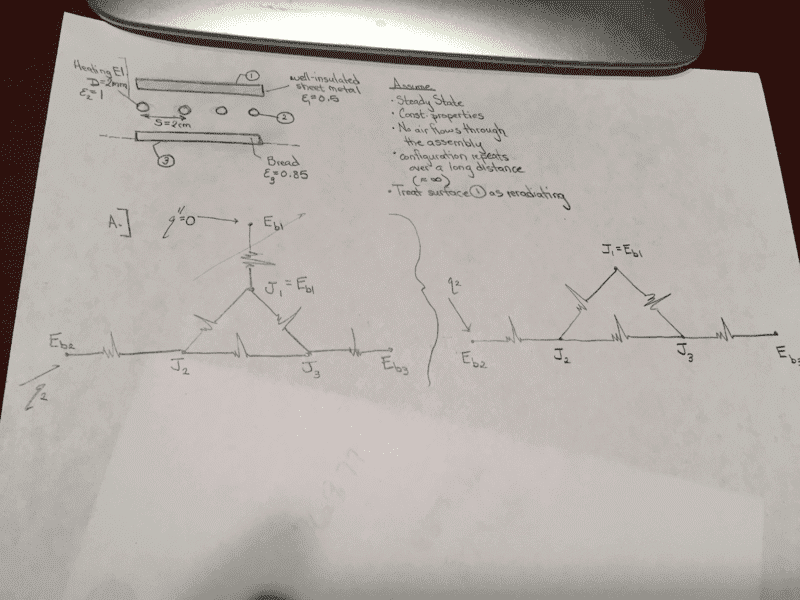 Heating El.
D=2mm
ε₂=1
①
well-insulated
sheet metal
ε₁=0.5
S=2cm
②
③
Bread
ε₃=0.85
Assume
• Steady State
• Const. properties
• No air flows through
the assembly
• configuration repeats
over a long distance
(≈∞)
• Treat surface ① as reradiating
A.]
q"=0
Eb1
J₁=Eb1
Eb2
J₂
J₃
Eb3
q₂
J₁=Eb1
q₂
Eb2
J₂
J₃
Eb3